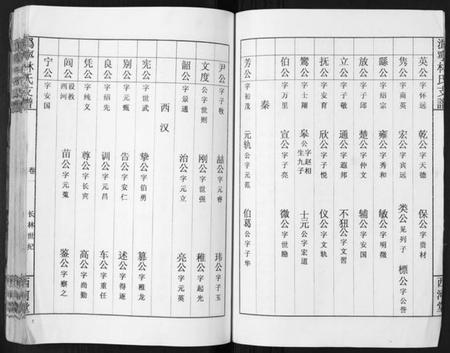 沩宁林氏支谱
英公字怀远 乾公字天德 保公字贵材
隽公字尚英 宏公字宾远 类公见列子 標公字公誉
繇公字绍宗 雍公字秀和 敏公字明微
放公字子邱 楚公字仲文 辅公字安国
立公字子敬 通公字遐邦 不狃公字文习
抚公字安育 欣公字子悦 仪公字文轨
鸞公字士翔 皋公字赵相生九子 士元公字宏道
伯公字万里 宣公字子亮 微公字世勋
秦
芳公字初茂 元轨公字元范 伯葛公字子华
西河堂
尹公字子牧 喆公字元睿 玮公字子玉
文度公字世则 刚公字世强 稚公字起光
韶公字景通 治公字元立 亮公字元英
西汉
宪公字世武 挚公字伯勇 篡公字稚龙
别公字元甄 告公字安仁 述公字得逐
良公字绍先 训公字元昌 车公字重任
凭公字纯义 尊公字长宾 高公字尚勤
闾公设教西河 苗公字元蒐 鉴公字察之
宁公字安国
沩宁林氏支谱
卷
长林世纪
西河堂